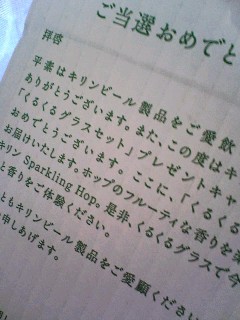 ご当選おめでと
拝啓
平素はキリンビール製品をご愛飲
ありがとうございます。また、この度はキ
「くるくるグラスセット」プレゼントキャ
おめでとうございます。ここに、「くるくる
お届けいたします。ホップのフルーティな香りを楽
キリン Sparkling Hop。是非、くるくるグラスで今
と香りをご体験ください。
ともキリンビール製品をご愛顧ください
申しあげます。